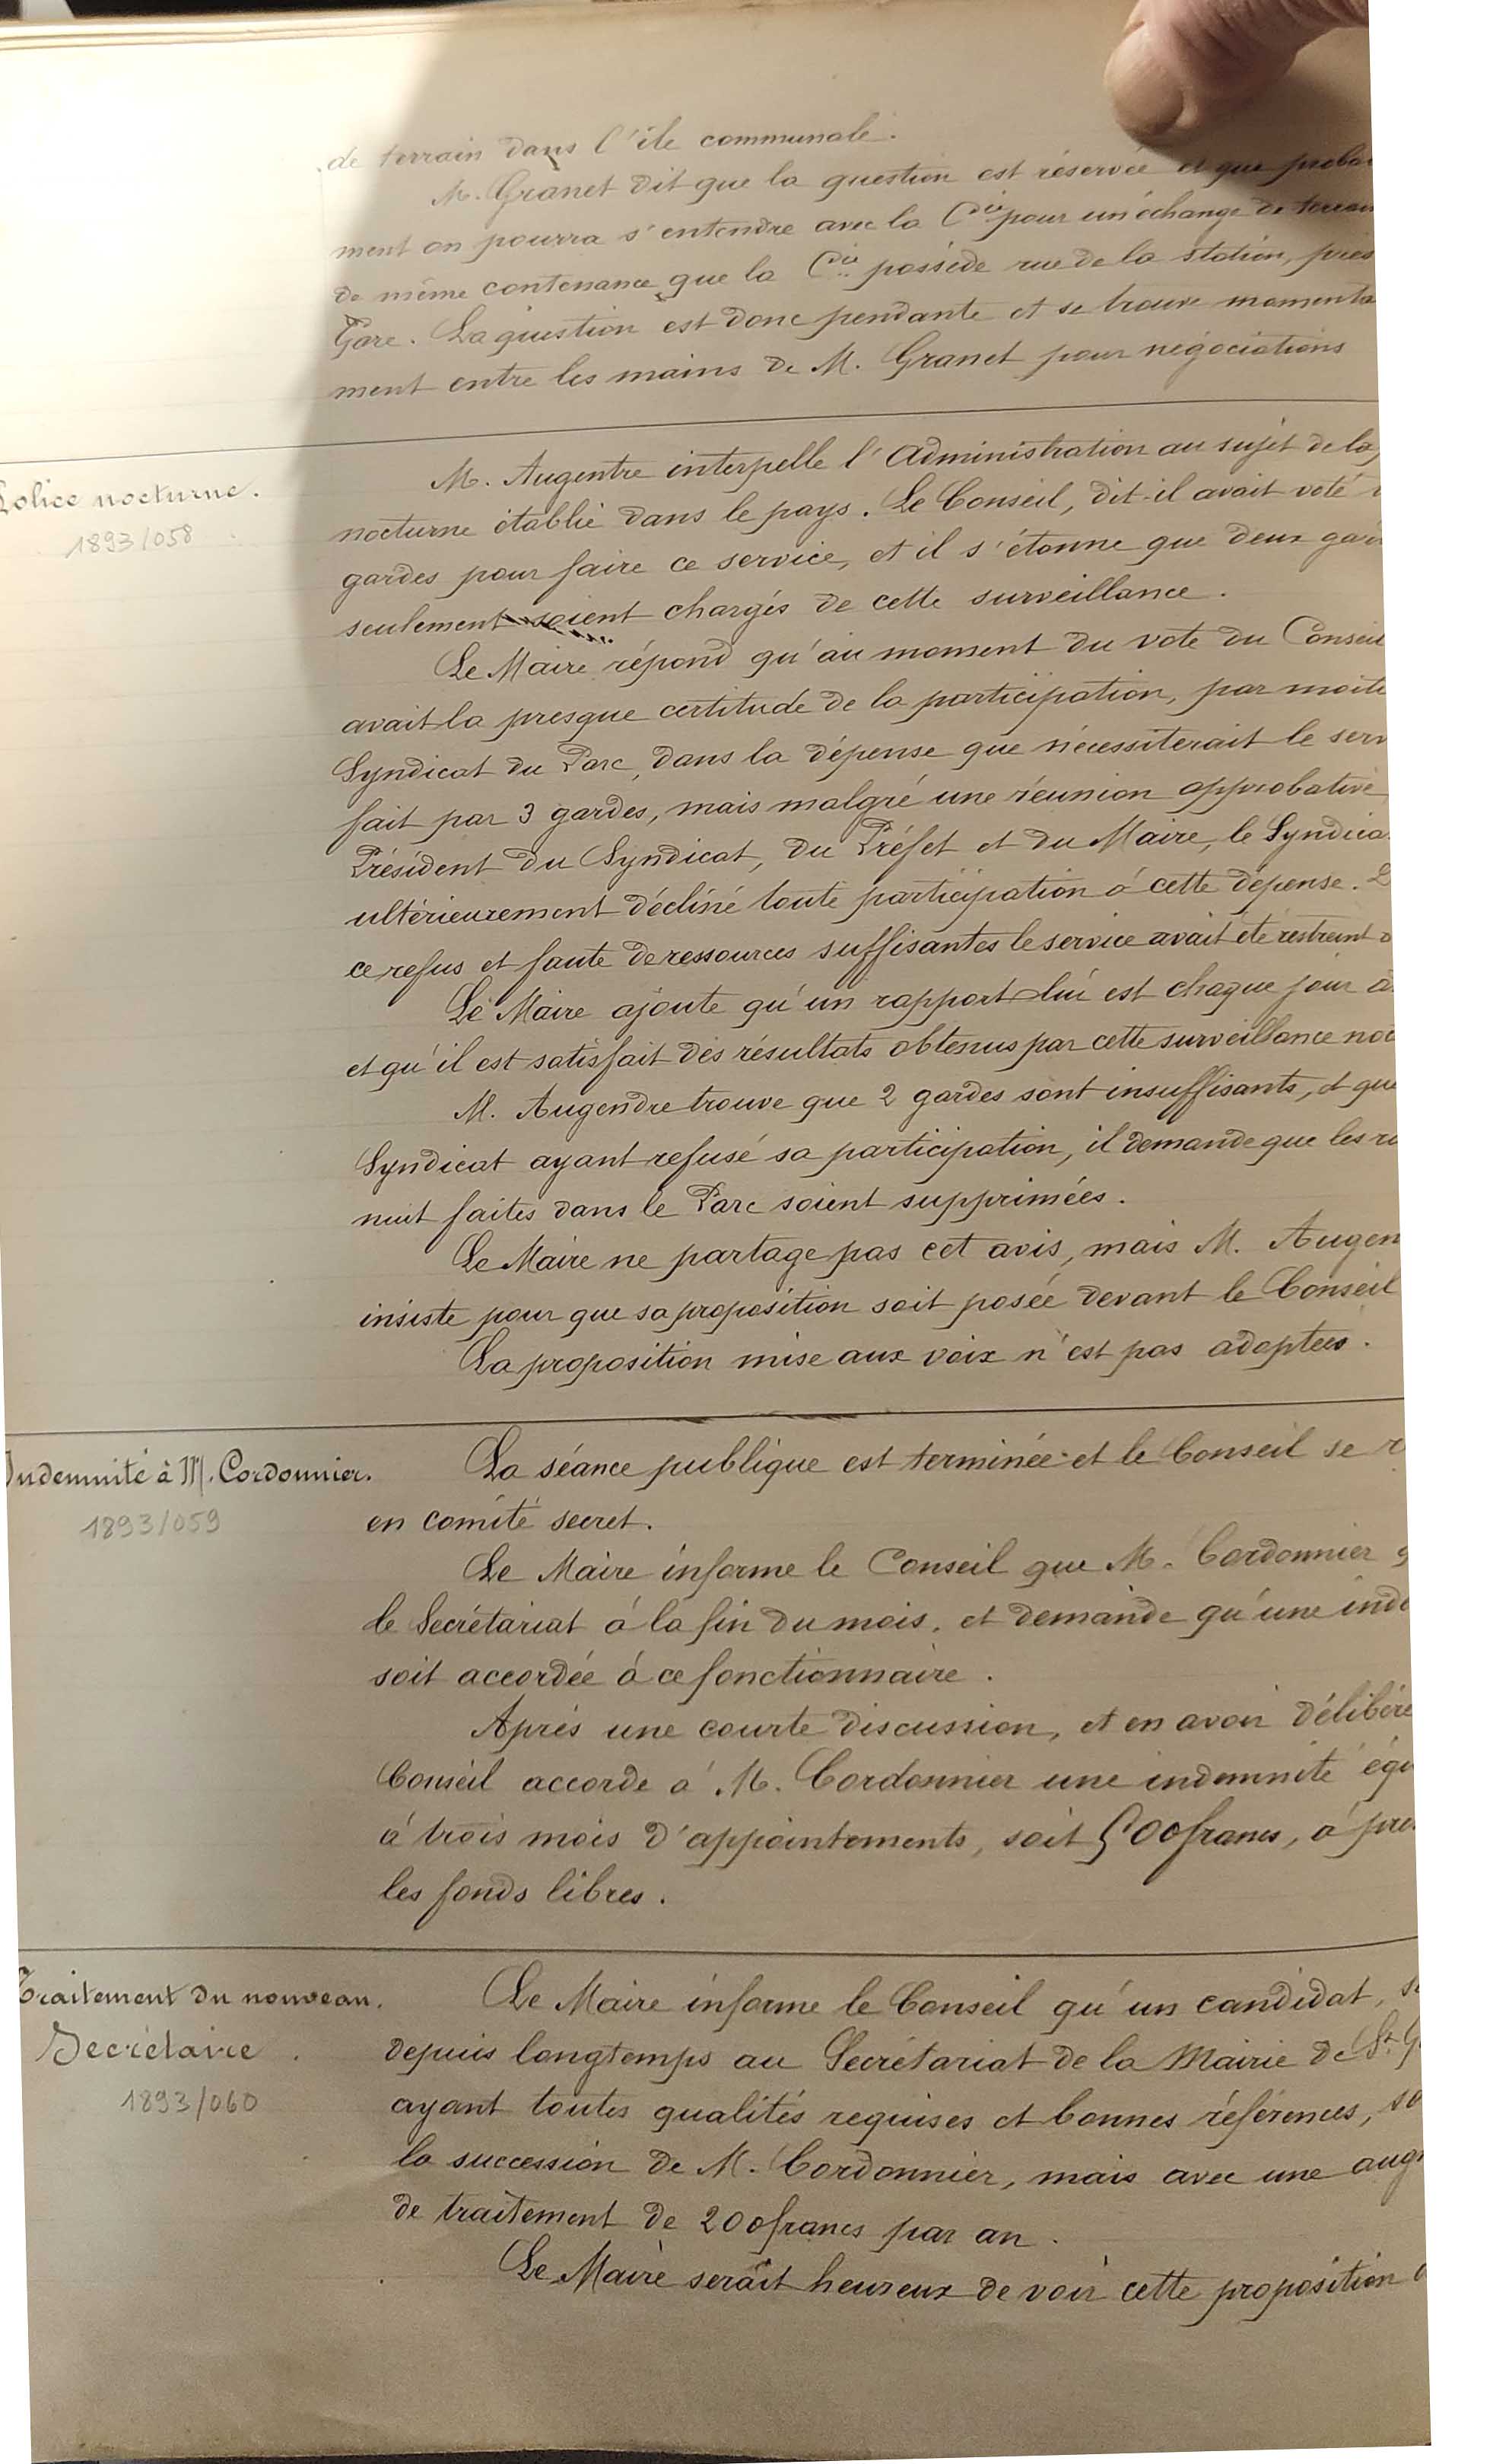 de terrain dans l'île communale.
M. Granet dit que la question est réservée et que proba
ment on pourra s'entendre avec la Cie pour un échange de terrain
de même contenance que la Cie possède rue de la Station, près
Gare. La question est donc pendante et se trouve momenta
ment entre les mains de M. Granet pour négociations
Police nocturne.
1893/058
M. Augentre interpelle l'Administration au sujet de la
nocturne établie dans le pays. Le Conseil, dit-il avait voté
gardes pour faire ce service, et il s'étonne que deux gar
seulement soient chargés de cette surveillance.
Le Maire répond qu'au moment du vote du Conseil
avait la presque certitude de la participation, par moité
Syndicat du Parc, dans la dépense que nécessiterait le serv
fait par 3 gardes, mais malgré une réunion approbative
Président du Syndicat, du Préfet et du Maire, le Syndica
ultérieurement décliné toute participation à cette dépense.
ce refus et faute de ressources suffisantes le service avait été restreint à
Le Maire ajoute qu'un rapport lui est chaque jour a
et qu'il est satisfait des résultats obtenus par cette surveillance noc
M. Augendre trouve que 2 gardes sont insuffisants, et que
Syndicat ayant refusé sa participation, il demande que les ro
nuit faites dans le Parc soient supprimées.
Le Maire ne partage pas cet avis, mais M. Augen
insiste pour que sa proposition soit posée devant le Conseil
La proposition mise aux voix n'est pas adoptée.
Indemnité à M. Cordonnier.
1893/059
La séance publique est terminée et le Conseil se r
en comité secret.
Le Maire informe le Conseil que M. Cordonnier q
le Secrétariat à la fin du mois, et demande qu'une inde
soit accordée à ce fonctionnaire.
Après une courte discussion, et en avoir délibéré
Conseil accorde à M. Cordonnier une indemnité éga
à trois mois d'appointements, soit 500 francs, à pre
les fonds libres.
Traitement du nouveau
Secrétaire.
1893/060
Le Maire informe le Conseil qu'un candidat, s
depuis longtemps au Secrétariat de la Mairie de St G
ayant toutes qualités requises et bonnes références, so
la succession de M. Cordonnier, mais avec une augm
de traitement de 200 francs par an.
Le Maire serait heureux de voir cette proposition a